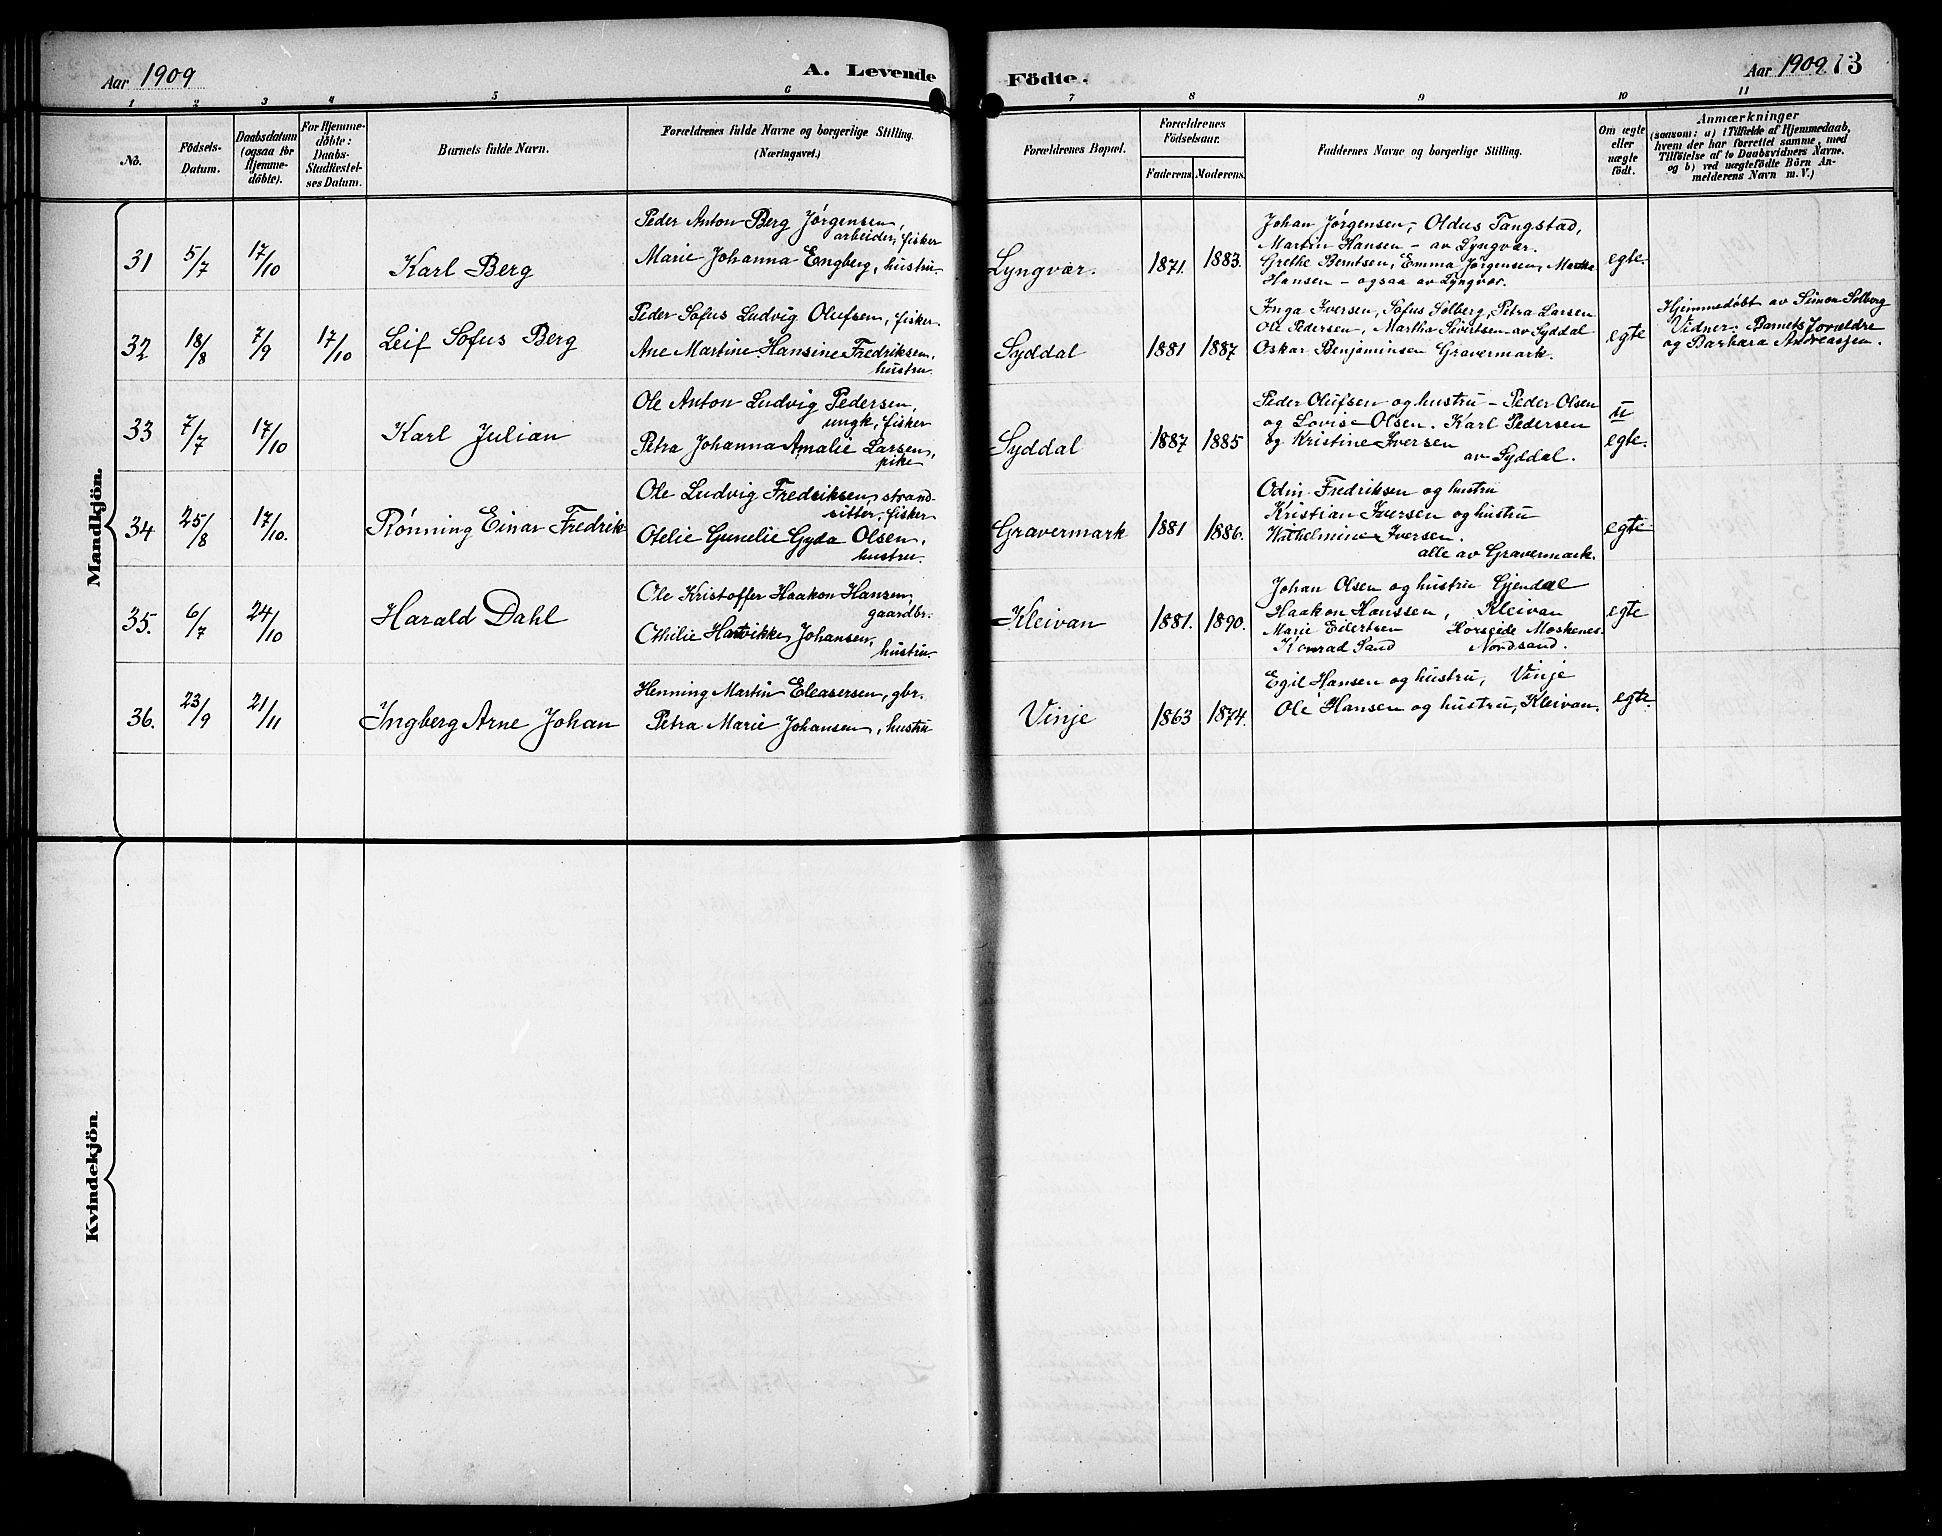 Aar 1909
A. Levende Födte.
Aar 1909 73
1 2 3 4 5 6 7 8 9 10 11
No.
Födsels-
Datum.
Daabsdatum
(ogsaa for
Hjemme-
döbte).
For Hjemme-
döbte:
Daabs-
Stadfæstel-
ses Datum.
Barnets fulde Navn.
Forældrenes fulde Navne og borgerlige Stilling.
(Næringsvei.)
Forældrenes Bopæl.
Forældrenes
Födselsaar.
Faderens. Moderens.
Faddernes Navne og borgerlige Stilling.
Om ægte
eller
uægte
födt.
Anmærkninger
(saasom: a) i Tilfælde af Hjemmedaab,
hvem der har forrettet samme, med
Tilföielse af to Daabsvidners Navne.
og b) ved uægtefödte Börn An-
melderens Navn m. V.)
Mandkjön.
31 5/7 17/10 Karl Berg
Peder Anton Berg Jørgensen,
arbeider, fisker
Marie Johanna Engberg, hustru
Lyngvær. 1871. 1883.
Johan Jørgensen, Oldus Tangstad,
Martin Hansen - av Lyngvær.
Grethe Berntsen, Emma Jørgensen, Martha
Hansen - ogsaa av Lyngvær.
egte.
32 18/8 7/9 17/10 Leif Sofus Berg
Peder Sofus Ludvig Olufsen, fisker
Ane Martine Hansine Fredriksen,
hustru.
Syddal 1881 1887
Inga Iversen, Sofus Solberg, Petra Larsen
Ole Pedersen, Martha Sivertsen av Syddal
Oskar Benjaminsen Gravermark.
egte
Hjemmedøbt av Simon Solberg
Vidner: Barnets forældre
og Barbara Andreassen.
33 7/7 17/10 Karl Julian
Ole Anton Ludvig Pedersen,
ungk, fisker
Petra Johanna Amalie Larsen,
pike
Syddal 1887 1885
Peder Olufsen og hustru - Peder Olsen
og Lovise Olsen. Karl Pedersen
og Kristine Iversen
av Syddal.
u
egte.
34 25/8 17/10. Rønning Einar Fredrik
Ole Ludvig Fredriksen, strand-
sitter, fisker
Otelie Gunelie Gyda Olsen,
hustru.
Gravermark 1881 1886.
Odin Fredriksen og hustru
Kristian Iversen og hustru
Wilhelmine Iversen.
alle av Gravermark.
egte
35. 6/7 24/10 Harald Dahl
Ole Kristoffer Haakon Hansen,
gaardbr.
Othilie Hartvikke Johansen,
hustru.
Kleivan 1881. 1890.
Johan Olsen og hustru Gjendal
Haakon Hanssen, Kleivan
Marie Eilertsen Horseide Moskenes.
Konrad Sand Nordsand.
egte
36. 23/9 21/11 Ingberg Arne Johan
Henning Martin Eleasersen, gbr.
Petra Marie Johansen, hustru
Vinje 1863 1874.
Egil Hansen og hustru, Vinje
Ole Hansen og hustru, Kleivan.
egte
Kvindekjön.